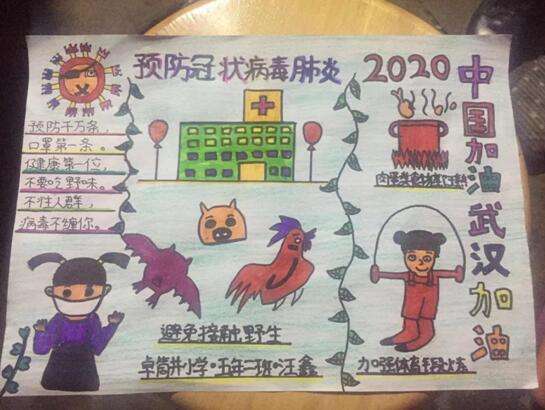 预防冠状病毒肺炎
2020
中国加油武汉加油
预防千万条,
口罩第一条。
健康第一位,
不要吃野味。
不往人群,
病毒不缠你。
避免接触野生
卓筒井小学·五年二班·汪鑫
加强体育锻炼